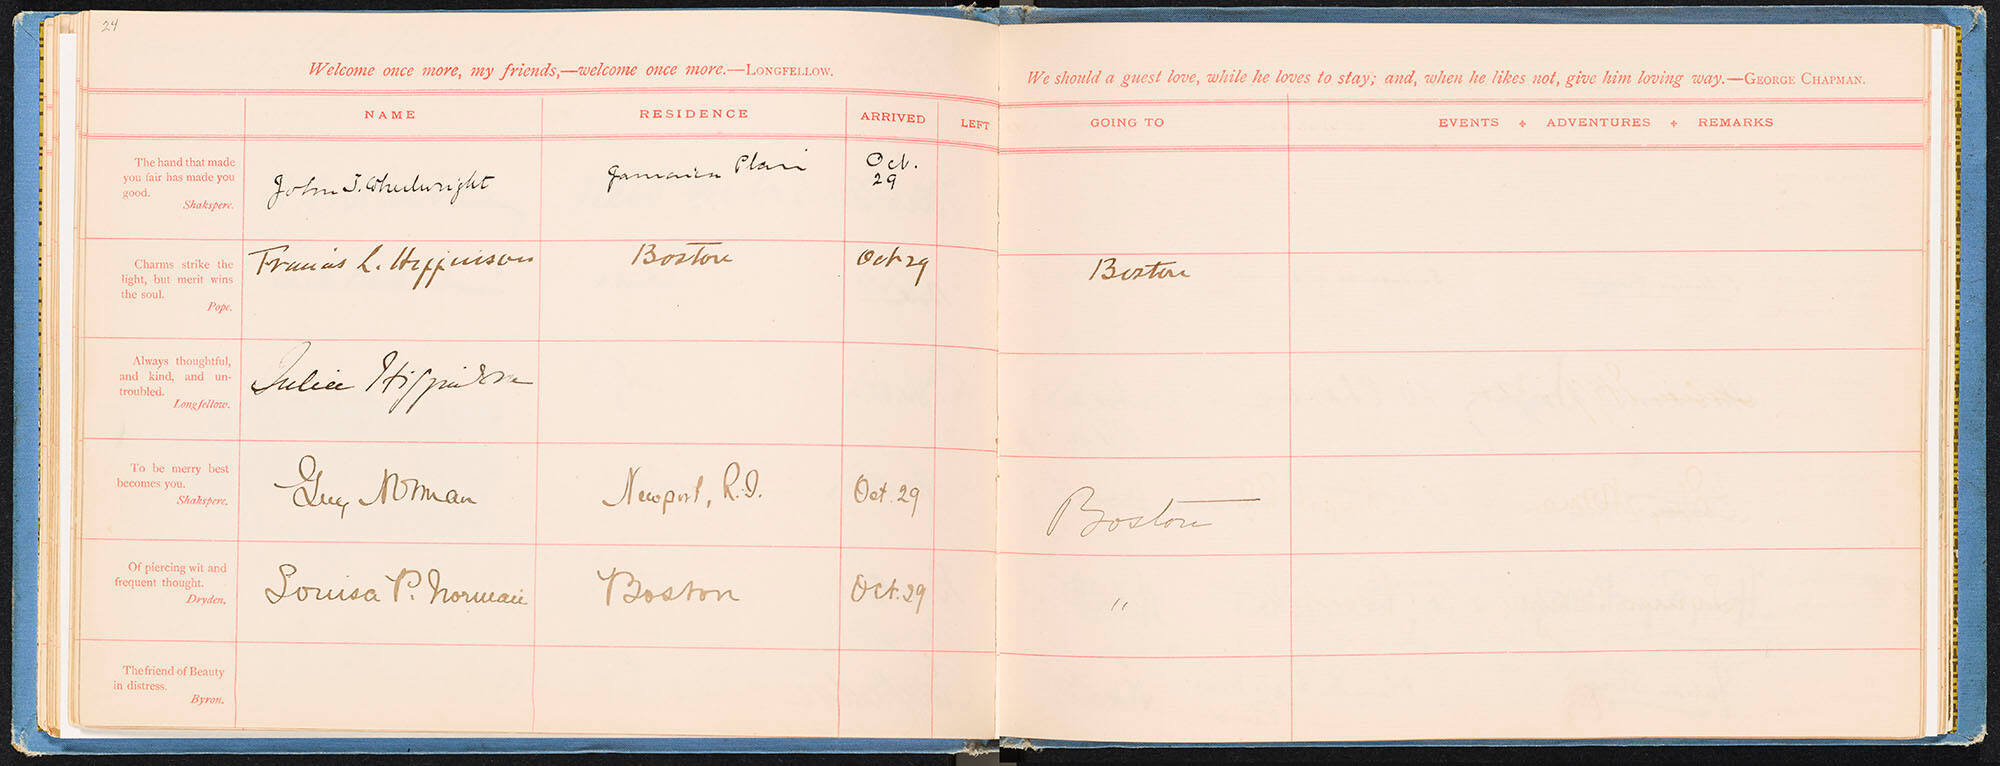 24
Welcome once more, my friends,—welcome once more.—LONGFELLOW.
We should a guest love, while he loves to stay; and, when he likes not, give him loving way.—GEORGE CHAPMAN.
NAME RESIDENCE ARRIVED LEFT GOING TO EVENTS + ADVENTURES + REMARKS
The hand that made
you fair has made you
good.
Shakspere.
John T. Wheelwright Jamaica Plain Oct.
29
Charms strike the
light, but merit wins
the soul.
Pope.
Francis L. Higginson Boston Oct 29 Boston
Always thoughtful,
and kind, and un-
troubled.
Longfellow.
Julia Higginson
To be merry best
becomes you.
Shakspere.
Guy Norman Newport, R.I. Oct. 29 Boston
Of piercing wit and
frequent thought.
Dryden.
Louisa P. Norman Boston Oct. 29 "
The friend of Beauty
in distress.
Byron.